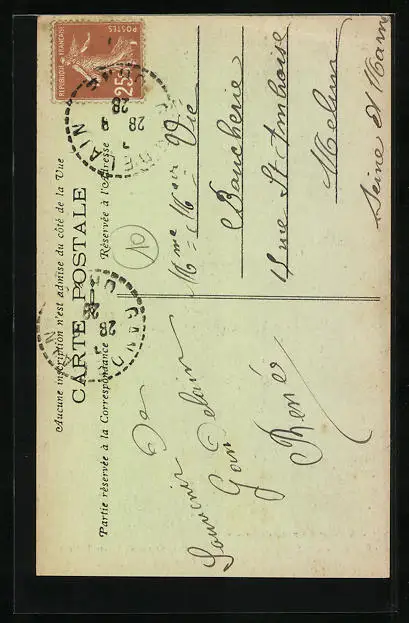 Aucune inscription n'est admise du côté de la Vue
CARTE POSTALE
Partie réservée à la Correspondance
Réservée à l'Adresse
Souvenir De
Delain
René
10
Mme
Vie
Boucherie
St-Ambroise
Melun
Seine et Marne
REPUBLIQUE FRANÇAISE
POSTES
25c
28
28